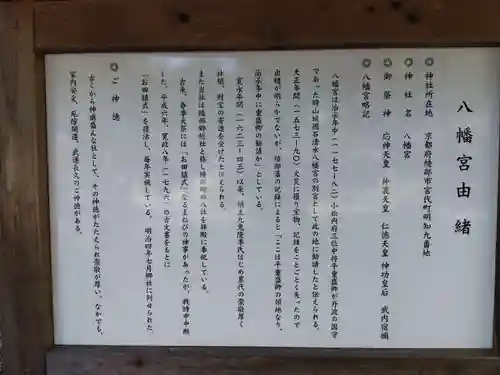 八幡宮由緒
◎神社所在地　京都府綾部市宮代町明知九番地
◎神社名　八幡宮
◎御祭神　応神天皇　仲哀天皇　仁徳天皇　神功皇后　武内宿禰
◎八幡宮略記
八幡宮は治承年中（一一七七-八二）小松内府三位中将平重盛卿が丹波の国守
であった時山城国石清水八幡宮の別宮として此の地に勧請したと伝えられる。
天正年間（一五七三-九〇）火災に罹り宝物、記録をことごとく失ったので
由緒が明らかでないが、領部落の記録によると「ここは平重盛の領地なり、
治承の年中に重盛卿の勧請か」としている。
寛永年間（一六二三-四三）以来、領主九鬼隆季氏はじめ累代の崇敬厚く
社領、祠宮の寄進を受けたと伝えられる。
また当社は綾部郷総社と称し綾部郷の八社を拝殿に奉祀している。
古来、春季大祭には「お田植式」なるまねびの神事があったが、戦時中中断
した。平成六年、寛政八年（一七九六）の古文書をもとに
「お田植式」を復活し、毎年実施している。明治四年七月郷社に列せられた。
◎ご神徳
古くから神威高んな社として、その神徳がたたえられ崇敬が厚い。なかでも、
家内安全、厄除開運、武運長久のご神徳がある。